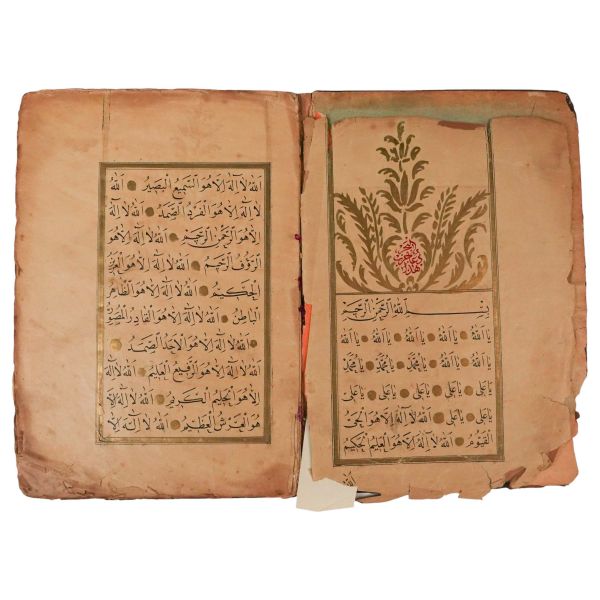 بسم الله الرحمن الرحيم
يا الله يا الله يا الله يا الله يا الله
يا الله يا الله يا محمد يا محمد يا محمد
يا علي يا علي يا علي يا علي يا علي
يا علي يا علي الله لا اله الا هو الحي
القيوم الله لا اله الا هو العليم الحكيم
الله
الله لا اله الا هو السميع البصير الله
لا اله الا هو الفرد الصمد الله لا اله
الا هو الرحمن الرحيم الله لا اله الا هو
الرؤف الرحيم الله لا اله الا هو العزيز
الحكيم الله لا اله الا هو الظاهر
الباطن الله لا اله الا هو القادر المصور
الله لا اله الا هو الاحد الصمد
الله لا اله الا هو الرفيع العليم الله لا اله
الا هو الحليم الكريم الله لا اله الا
هو العرش العظيم الله لا اله الا